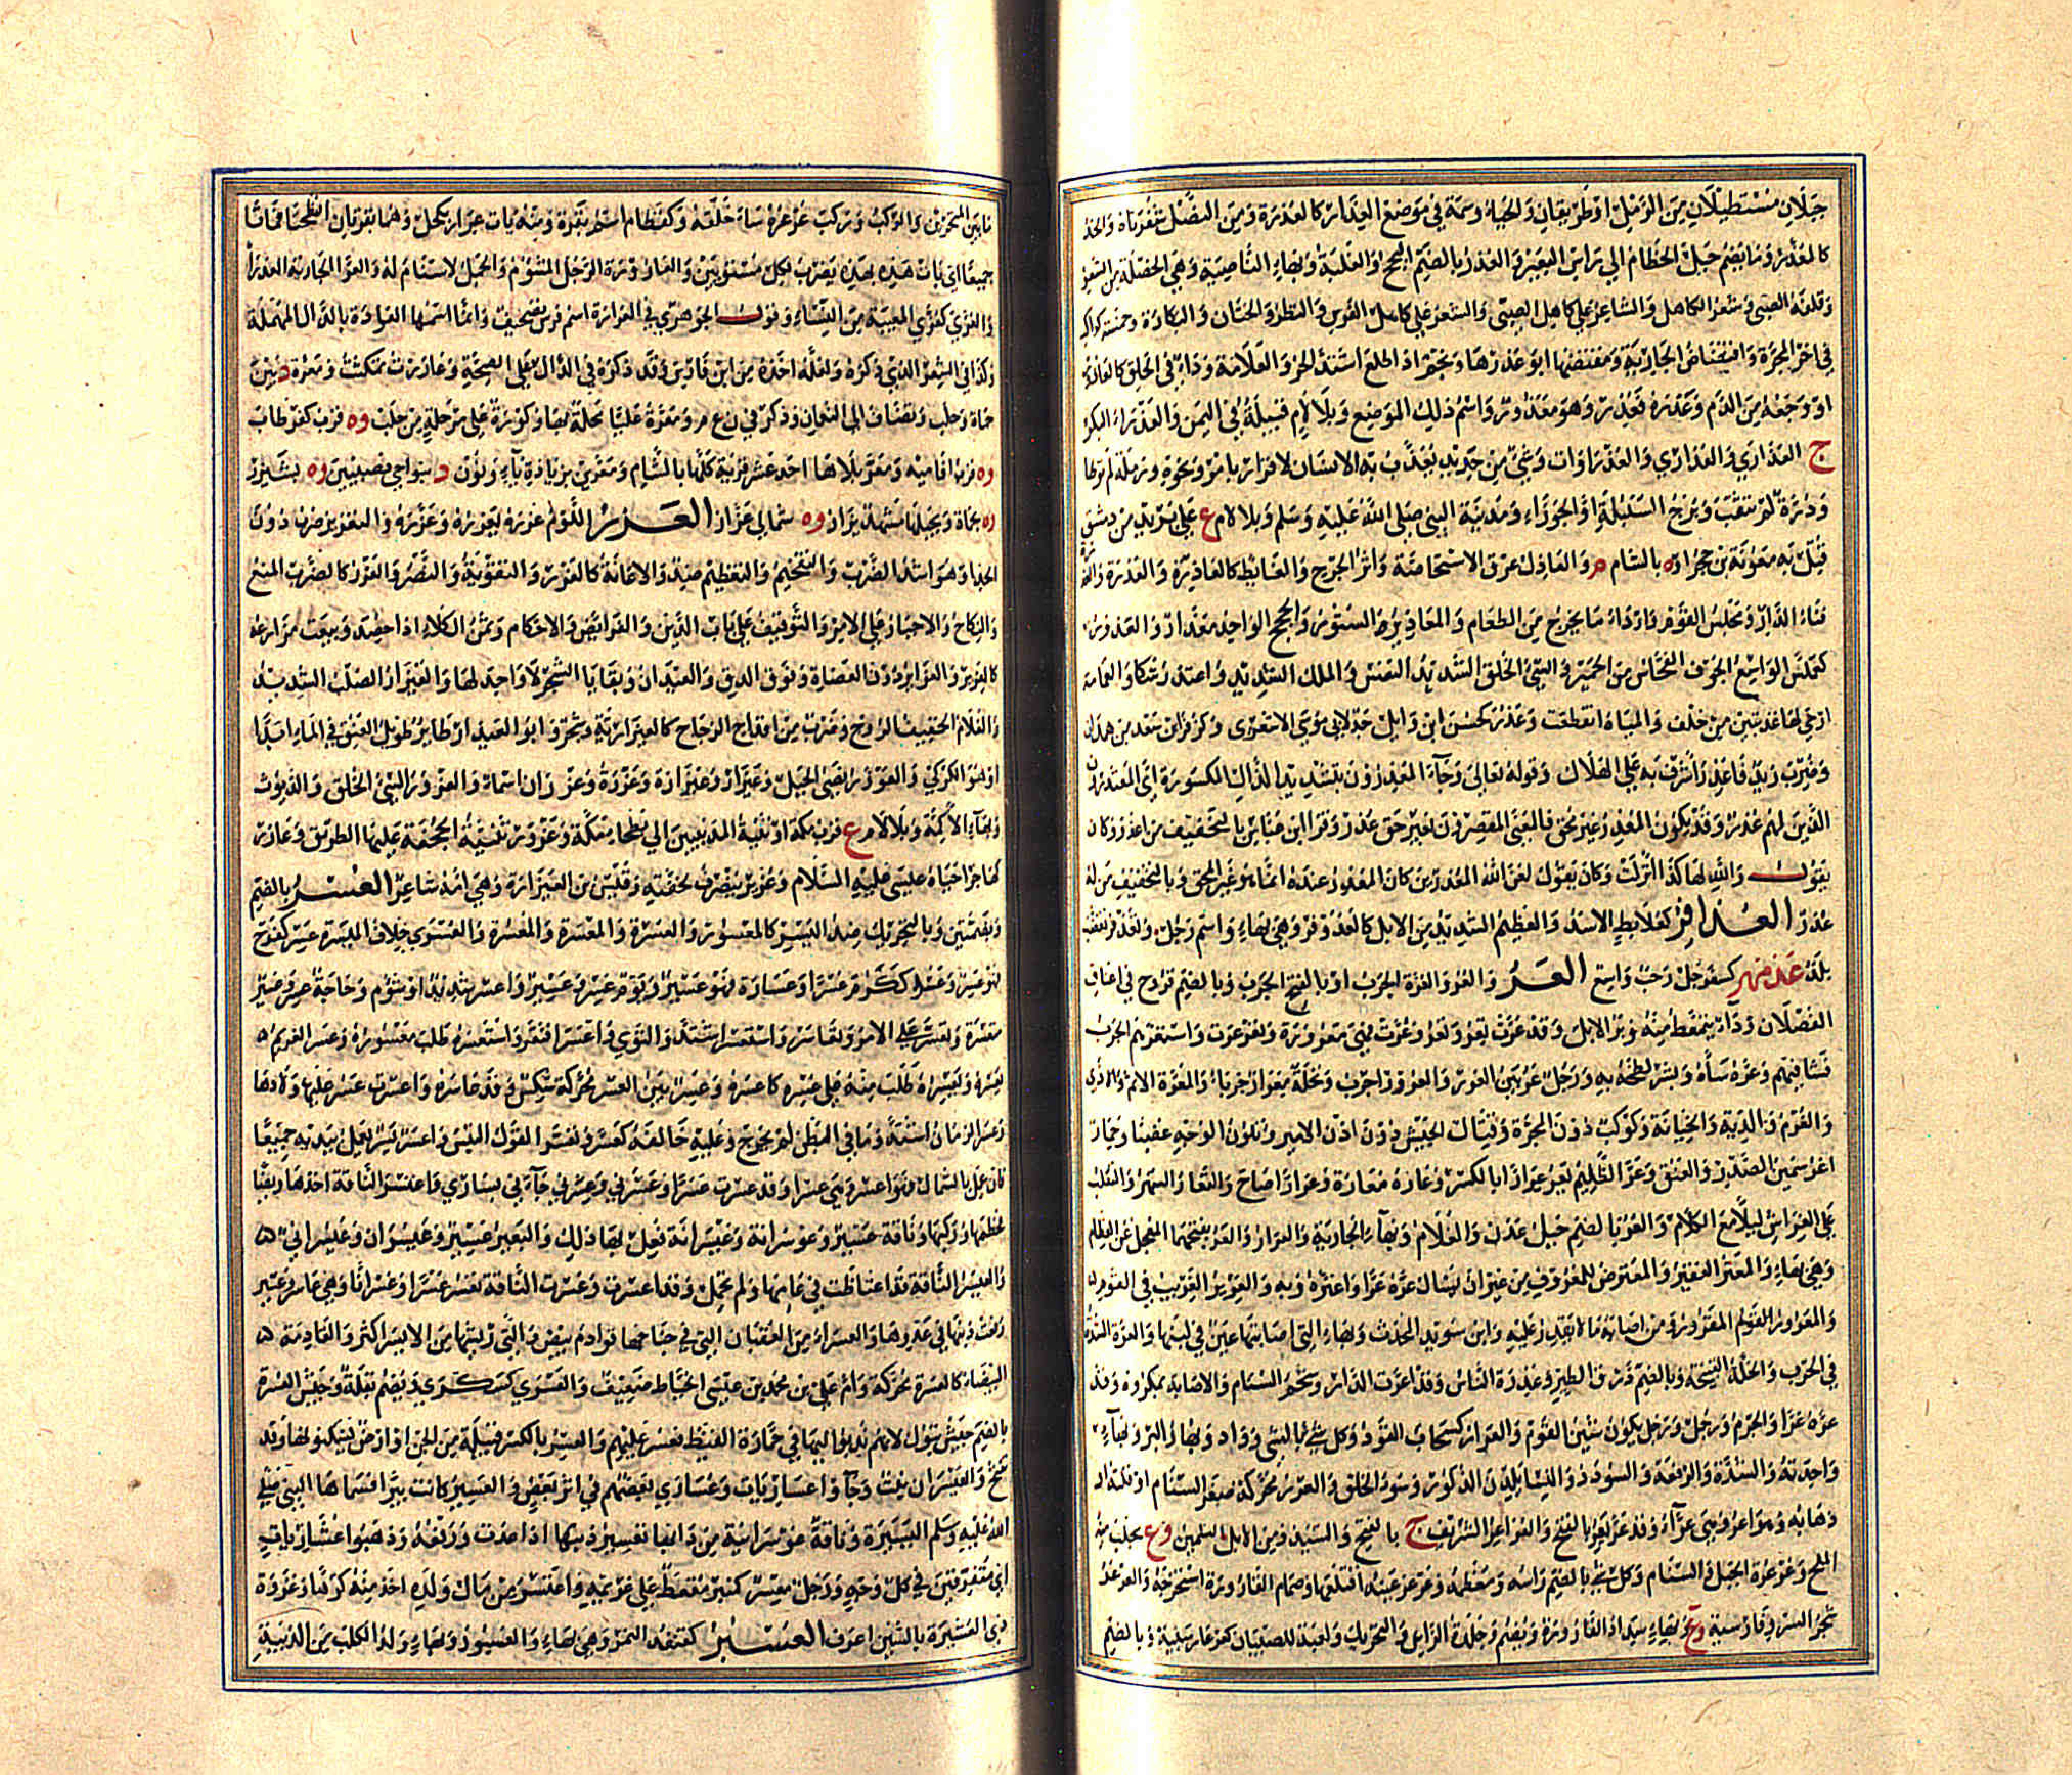 حبلان مستطيلان من الرمل او طريقان والحياء وسمة في موضع العذار كالعذرة ومن النصل شفرتاه والخد
كالمعذر وما يضم حبل الخطام الى راس البعير والعذر بالضم النجح والغلبة وبهاء الناصية وهي الخصلة من الشعر
وقلفة الصبي وشعر الكاهل والشاعر على كاهل الصبي والشعر على كاهل الفرس والبظر والختان والبكارة وخمسة كواكب
في اخر المجرة وافتضاض الجارية ومفتضها ابو عذرها ونجم اذا طلع اشتد الحر والعلامة وداء في الحلق كالعاذور
او وجعه من الدم وعذره فعذر وهو معذور واسم ذلك الموضع وبلا لام قبيلة في اليمن والعذراء البكر
ج العذارى والعذاري والعذراوات وشيء من حديد يعذب به الانسان لاقرار بامر ونحوه ورملة لم توطا
ودرة لم تثقب وبرج السنبلة او الجوزاء ومدينة النبي صلى الله عليه وسلم وبلا لام ع على بريد من دمشق
قتل به معوية بن حجر او ه بالشام م والعاذل عرق الاستحاضة واثر الجرح والغائط كالعاذرة والعذرة والعذرة
فناء الدار ومجلس القوم واردا ما يخرج من الطعام والمعاذير الستور والحجج الواحد معذار والعذور
كعملس الواسع الجوف الفحاش من الحمير والسيئ الخلق الشديد النفس والملك الشديد واعتذر شكا والعمامة
ارخى لها عذبتين من خلف والمياه انقطعت وعذر كحسن ابن وائل جد لابي موسى الاشعري وكزفر ابن سعد من همدان
وضرب زيد فاعذر اشرف به على الهلاك وقوله تعالى وجاء المعذرون بتشديد الذال المكسورة اي المعتذرون
الذين لهم عذر وقد يكون المعذر غير محق فالمعنى المقصرون بغير حق عذر وقرا ابن عباس بالتخفيف من اعذر وكان
يقول والله لهكذا انزلت وكان يقول لعن الله المعذرين كان المعذر عنده انما هو غير المحق وبالتخفيف من له
عذر العذافر كعلابط الاسد والعظيم الشديد من الابل كالعذوفر وهي بهاء واسم رجل وتعذفر تغضب
بلد عذمهر كسفرجل رحب واسع العر والعر والعرة الجرب او بالفتح الجرب وبالضم قروح في اعناق
الفصلان وداء يتمعط منه وبر الابل وقد عرت تعر وتعر وعرت فهي معرورة وتعرعرت واستعرهم الجرب
فشا فيهم وعره ساءه وبشر لطخه به ورجل عر بين العرر والعرور اجرب ونخلة معرار جرباء والمعرة الاثم والاذى
والغرم والدية والخيانة وكوكب دون المجرة وقتال الجيش دون اذن الامير وتلون الوجه غضبا وحمار
اعر سمين الصدر والعنق وعر الظليم يعر عرارا بالكسر وعاره معارة وعرارا صاح والتعار السهر والتقلب
على الفراش ليلا مع الكلام والعر بالضم جبل عدن والغلام وبهاء الجارية والعرار والعر بفتحهما المعجل عن الفطام
وهي بهاء والمعتر الفقير والمعترض للمعروف من غير ان يسال عره عرا واعتره وبه والعرير الغريب في القوم
والمعرور المقرور ومن اصابه ما لا يقدر عليه وابن سويد المحدث وبهاء التي اصابتها عين في لبنها والعرة الشدة
في الحرب والخلة القبيحة وبالضم ذرق الطير وعذرة الناس وقد اعرت الدار وشحم السنام والاصابة بمكروه وقد
عره عرا والجرم ورجل ورجل يكون شين القوم والعرار كسحاب القود وكل شيء باء بشيء وواد وبهار البر وبهاء
واحدته والشدة والرفعة والسودد والنساء يلدن الذكور وسوء الخلق والعرر محركة صغر السنام او قلته او
ذهابه وهو اعر وهي عراء وقد عر يعر بالفتح والعراعر الشريف ج بالفتح والسيد ومن الابل السمين وع يجلب منه
الملح وعرعرة الجبل والسنام وكل شيء بالضم راسه ومعظمه وعرعر عينه اقتلعها وصمام القارورة استخرجه والعرعر
شجر السرو فارسية وع وبهاء سداد القارورة ويضم وجلدة الراس والتحريك ولعبة للصبيان كعرعار مبنية وبالضم
ما بين المنخرين والركب وركب عرعره ساء خلقه وكقطام اسم بقرة ومنه باءت عرار بكحل وهما بقرتان انتطحتا فماتتا
جميعا اي باءت هذه بهذه يضرب لكل مستويين والعار وعرة الرجل المشؤم والجمل لا سنام له والعرا الجارية العذراء
والعرى كعزى المعيبة من النساء وقول الجوهري في العرارة اسم فرس تصحيف وانما اسمها العرادة بالدال المهملة
وكذا في الشعر الذي ذكره ولعله اخذه من ابن فارس وقد ذكره في الدال على الصحة وعاررت تمكثت ومعرة د بين
حماة وحلب وتضاف الى النعمان وذكر في ن ع م ومعرة علياء محلة بها وكورة على مرحلة من حلب وه قرب كفرطاب
وه قرب افامية ومعر بلا ها احد عشر قرية كلها بالشام ومعرين بزيادة ياء ونون د بنواحي نصيبين وه بشيزر
وه بحماة وبجبلها مشهد يزار وه شمالي عزاز العزر اللوم عزره يعزره وعزره والتعزير ضرب دون
الحد او هو اشد الضرب والتفخيم والتعظيم ضد والاعانة كالعزر والتقوية والنصر والعزر كالضرب المنع
والنكاح والاجبار على الامر والتوقيف على باب الدين والفرائض والاحكام وثمن الكلا اذا حصد وبيعت مزارعه
كالعزير والعزائر دون العضاه وفوق الدق والعيدان وبقايا الشجر لا واحد لها والعيزار الصلب الشديد
والغلام الخفيف الروح وضرب من اقداح الزجاج كالعيزارية وشجر وابو العيزار طاير طويل العنق في الماء ابدا
او هو الكركي والعزور نصي الجبل وعيزار وعيزارة وعزرة وعزران اسماء والعزور السيئ الخلق والديوث
وبهاء الاكمة وبلا لام ع قرب مكة او ثنية المدنيين الى بطحاء مكة وعزور ثنية الجحفة عليها الطريق وعازر
كهاجر احياه عيسى عليه السلام وعزير ينصرف لخفته وقيس بن العيزارة وهي امه شاعر العسر بالضم
وبضمتين وبالتحريك ضد اليسر كالمعسور والعسرة والمعسرة والمعسرة والعسرى خلاف الميسرة عسر كفرح
فهو عسر وعسر ككرم عسرا وعسارة فهو عسير ويوم عسر وعسير واعسر شديد او شؤم وحاجة عسر وعسير
متعسرة وتعسر علي الامر وتعاسر واستعسر اشتد والتوى واعسر افتقر واستعسره طلب معسوره وعسر الغريم
يعسره ويعسره طلب منه على عسره كاعسره وعسر بين العسر محركة شكس وقد عاسره واعسرت عسر عليها ولادها
وعسر الزمان اشتد وما في البطن لم يخرج وعليه خالفه كعسر وتعسر القول التبس واعسر يسر يعمل بيديه جميعا
فان عمل بالشمال فهو اعسر وهي عسراء وقد عسرت عسرا وعسرني وعسرني جاء في يساري واعتسر الناقة اخذها ريضا
فخطمها وركبها وناقة عسير وعوسرانة وعيسرانة فعل بها ذلك والبعير عسير وعيسران وعيسراني
والعسير الناقة قد اعتاطت في عامها ولم تحمل وقد اعسرت وعسرت الناقة تعسر عسرا وعسرانا وهي عاسر وعسير
رفعت ذنبها في عدوها والعسراء من العقبان التي في جناحها قوادم بيض والتي ريشها من الايسر اكثر والقادمة
البيضاء كالعسرة محركة وام علي بن محمد بن عيسى الخياط ضعيف والعسرى كسكرى ويضم بقلة وجيش العسرة
بالضم جيش تبوك لانهم ندبوا اليها في حمارة القيظ فعسر عليهم والعسر بالكسر قبيلة من الجن او ارض يسكنونها وقد
يفتح والعيسران نبت وجاؤا عساريات وعسارى بعضهم في اثر بعض والعسير كانت بيرا فسماها النبي صلى
الله عليه وسلم اليسيرة وناقة عوسرانية من دابها تعسير ذنبها اذا عدت ورفعه وذهبوا عشاريات
اي متفرقين في كل وجه ورجل معسر كمنبر مقعط على غريمه واعتسر من مال ولده اخذ منه كرها وغزوة
ذي العشيرة بالشين اعرف العسبر كقنفذ النمر وهي بهاء والعسبور وبهاء ولد الكلب من الذئبة